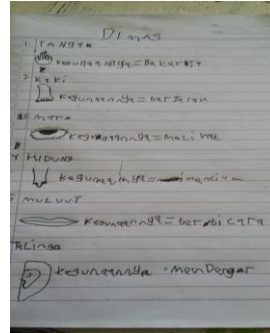 Dimas
1. TANGAN
Kegunaannya = Bekerja
2. KaKi
Kegunaannya = berjalan
MATA
Kegunaannya = Melihat
4 HIDUNG
Kegunaannya = mencium
5 MULUUT
Kegunaannya = berbicara
TeLinga
Kegunaannya = MenDengar